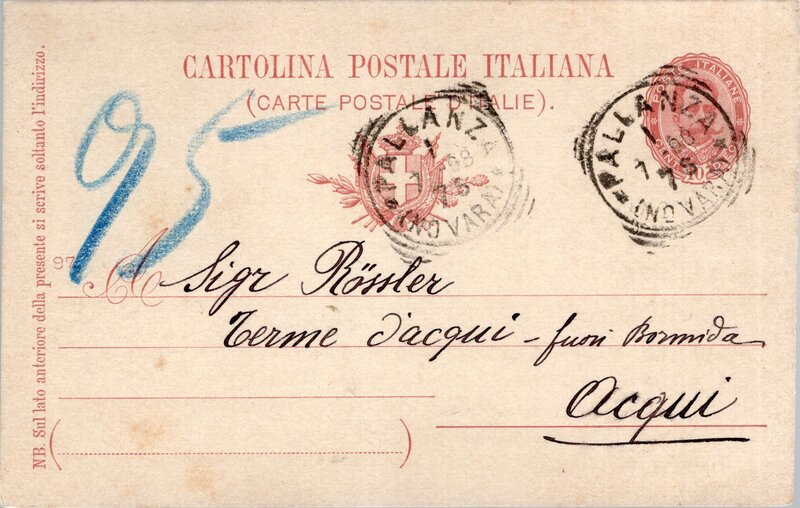 CARTOLINA POSTALE ITALIANA
(CARTE POSTALE D'ITALIE).
POSTE ITALIANE
10
PALLANZA
7 98
7 S
(NOVARA)
PALLANZA
7 98
7 S
(NOVARA)
95
97
A Sigr Rössler
Terme d'acqui - fuori Bormida
Acqui
NB. Sul lato anteriore della presente si scrive soltanto l'indirizzo.